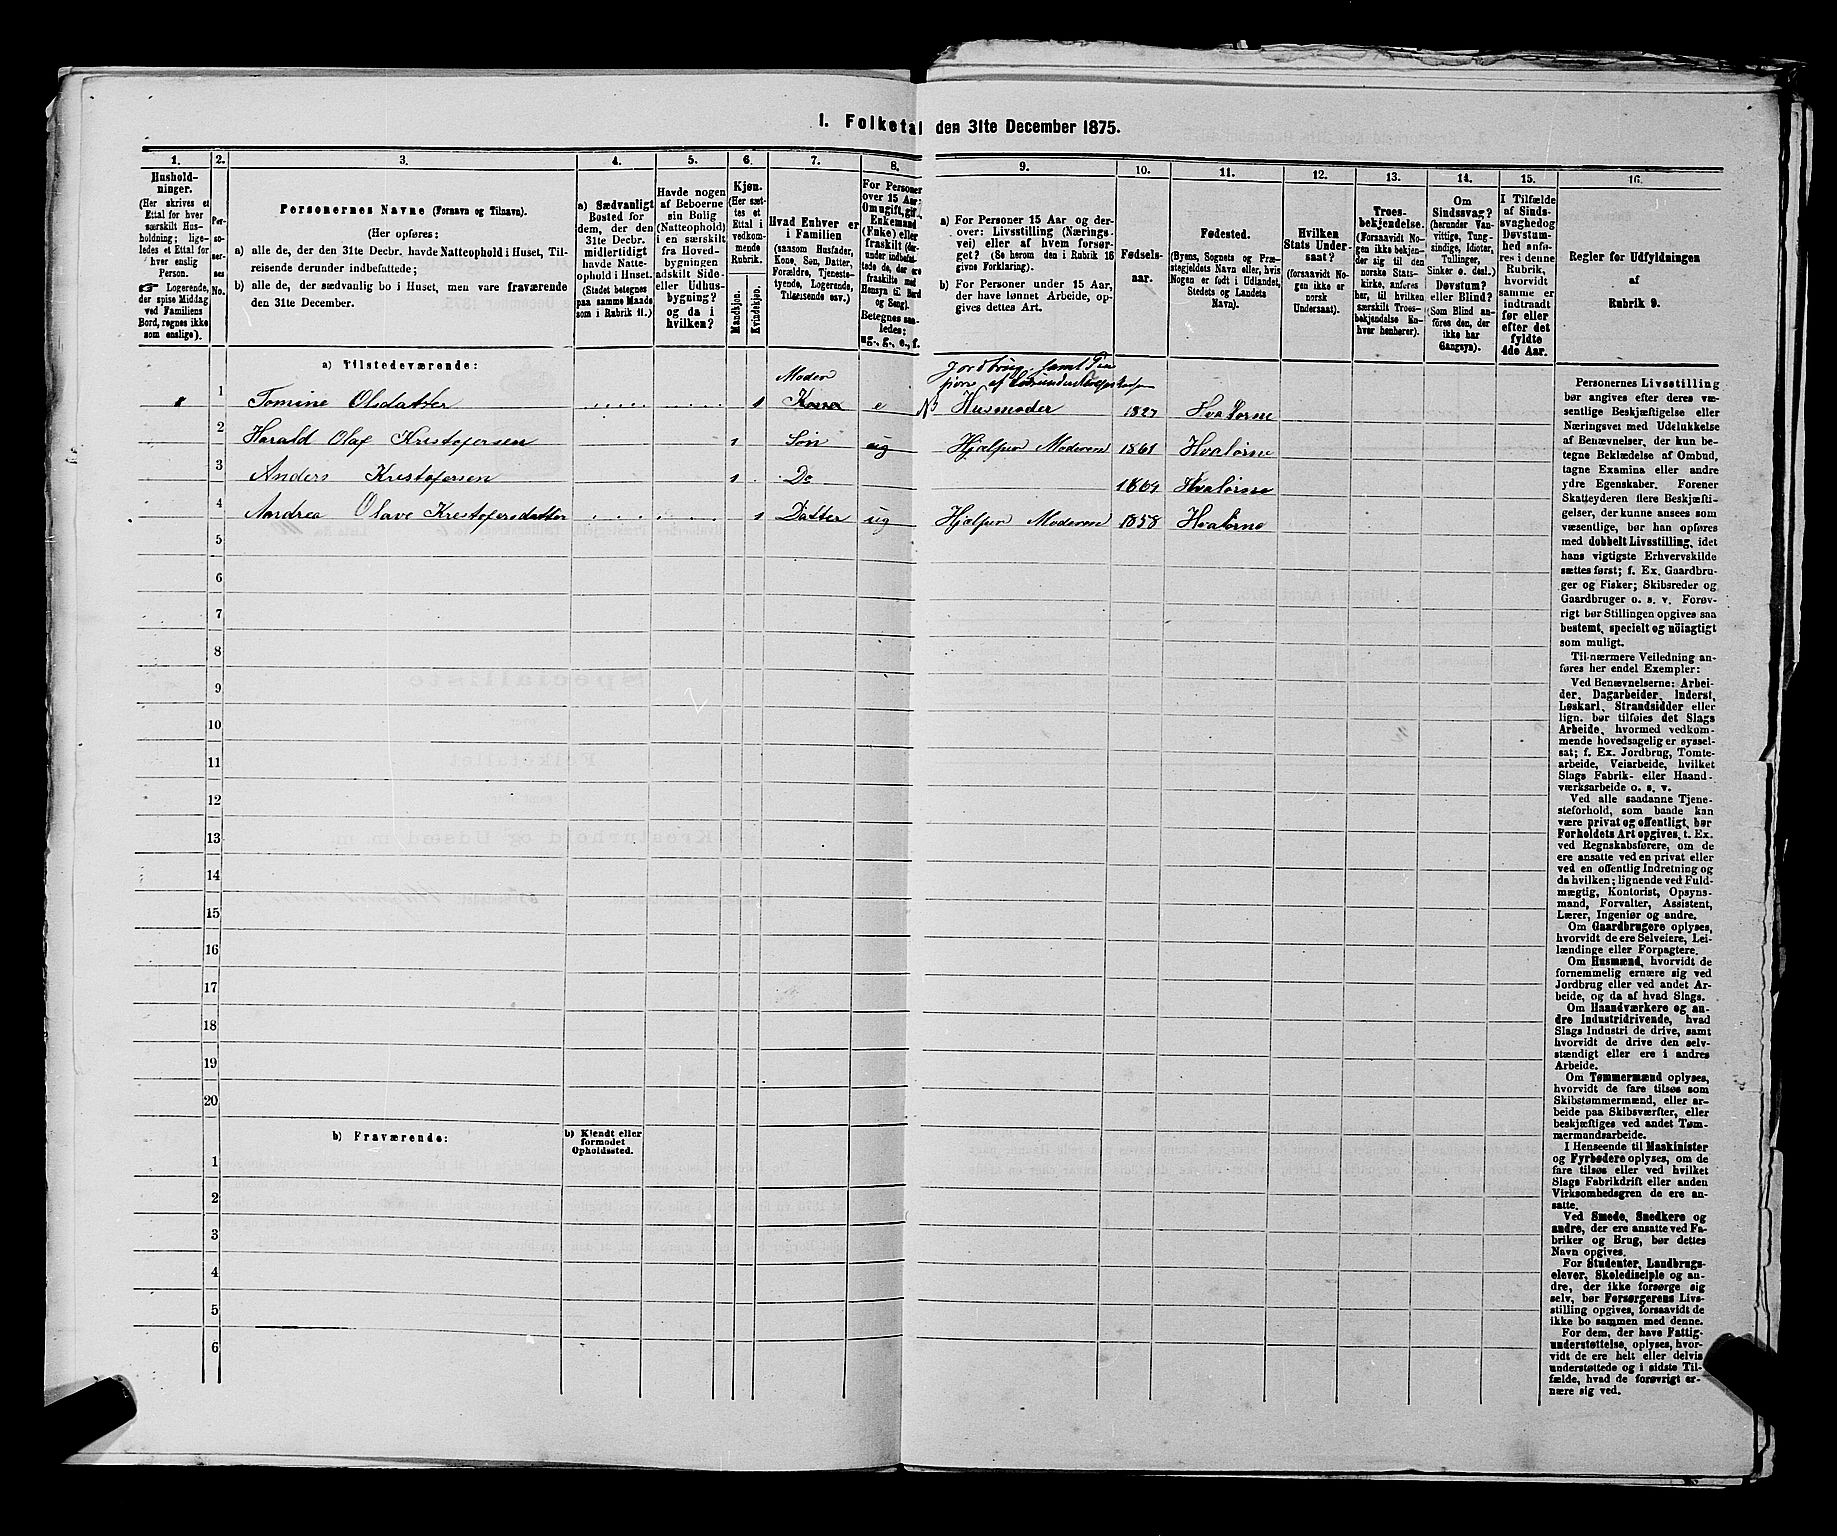 I. Folketal den 31te December 1875.
1. 2. 3. 4. 5. 6. 7. 8. 9. 10. 11. 12. 13. 14. 15. 16.
Hushold-
ninger.
(Her skrives et
Ettal for hver
særskilt Hus-
holdning; lige-
ledes et Ettal for
hver enslig
Person.
☞ Logerende,
der spise Middag
ved Familiens
Bord, regnes ikke
som enslige).
Per-
so-
ner-
nes
No.
Personernes Navne (Fornavn og Tilnavn).
(Her opføres:
a) alle de, der den 31te Decbr. havde Natteophold i Huset, Til-
reisende derunder indbefattede;
b) alle de, der sædvanlig bo i Huset, men vare fraværende
den 31te December.
a) Sædvanligt
Bosted for
dem, der den
31te Decbr.
midlertidigt
havde Natte-
ophold i Huset.
(Stedet betegnes
paa samme Maade
som i Rubrik 11.)
Havde nogen
af Beboerne
sin Bolig
(Natteophold)
i en særskilt
fra Hoved-
bygningen
adskilt Side-
eller Udhus-
bygning?
og da i
hvilken?
Kjøn.
(Her sæt-
tes et
Ettal i
vedkom-
mende
Rubrik.
Mandkjøn.
Kvindekjøn.
Hvad Enhver er
i Familien
(saasom Husfader,
Kone, Søn, Datter,
Forældre, Tjeneste-
tyende, Logerende,
Tilreisende osv.)
For Personer
over 15 Aar:
Om ugift, gif,
Enkemand
(Enke) eller
fraskilt (der-
under indbefat-
tede de, der ere
fraskilte med
Hensyn til Bord
og Seng).
Betegnes saa-
ledes:
ug., g., e., f.
a) For Personer 15 Aar og der-
over: Livsstilling (Nærings-
vei) eller af hvem forsør-
get? (Se herom den i Rubrik 16
givne Forklaring).
b) For Personer under 15 Aar,
der have lønnet Arbeide, op-
gives dettes Art.
Fødsels-
aar.
Fødested.
(Byens, Sognets og Præ-
stegjeldets Navn eller, hvis
Nogen er født i Udlandet,
Stedets og Landets
Navn).
Hvilken
Stats Under-
saat?
(forsaavidt No-
gen ikke er
norsk
Undersaat).
Troes-
bekjendelse.
(Forsaavidt No-
gen ikke bekjen-
der sig til den
norske Stats-
kirke, anføres
her, til hvilken
særskilt Troes-
bekjendelse En-
hver henhører).
Om
Sindssvag?
(herunder Van-
vittige, Tung-
sindige, Idioter,
Tullinger,
Sinker o. desl.)
Døvstum?
eller Blind?
(Som Blind an-
føres den, der
ikke har
Gangsyn).
I Tilfælde
af Sinds-
svaghed og
Døvstum-
hed anfø-
res i denne
Rubrik,
hvorvidt
samme er
indtraadt
før eller
efter det
fyldte
4de Aar.
Regler for Udfyldningen
af
Rubrik 9.
a) Tilstedeværende:
1 Tomine Olsdatter 1 Moder Kone e Husmoder 1827 Hvaløerne
2 Harald Olaf Kristofersen 1 Søn ug Hjælper Moderen 1861 Hvaløerne
3 Anders Kristofersen 1 Do 1869 Hvaløerne
4 Andrea Olave Kristofersdatter 1 Datter ug Hjælper Moderen 1858 Hvaløerne
5
6
7
8
9
10
11
12
13
14
15
16
17
18
19
20
b) Fraværende:
b) Kjendt eller
formodet
Opholdssted.
1
2
3
4
5
6
Personernes Livsstilling
bør angives efter deres væ-
sentlige Beskjæftigelse eller
Næringsvei med Udelukkelse
af Benævnelser, der kun be-
tegne Beklædelse af Ombud,
tagne Examina eller andre
ydre Egenskaber. Forener
Skatteyderen flere Beskjæfti-
gelser, der kunne ansees som
væsentlige, bør han opføres
med dobbelt Livsstilling, idet
hans vigtigste Erhvervskilde
sættes først; f. Ex. Gaardbru-
ger og Fisker; Skibsreder og
Gaardbruger o. s. v. Forøv-
rigt bør Stillingen opgives saa
bestemt, specielt og nöiagtigt
som muligt.
Til nærmere Veiledning an-
føres her endel Exempler:
Ved Benævnelserne: Arbei-
der, Dagarbeider, Inderst,
Løskarl, Strandsidder eller
lign. bør tilføies det Slags
Arbeide, hvormed vedkom-
mende hovedsagelig er syssel-
sat; f. Ex. Jordbrug, Tomte-
arbeide, Veiarbeide, hvilket
Slags Fabrik- eller Haand-
værksarbeide o. s. v.
Ved alle saadanne Tjene-
steforhold, som baade kan
være privat og offentligt, bør
Forholdets Art opgives, t. Ex.
ved Regnskabsførere, om de
ere ansatte ved en privat eller
ved en offentlig Indretning og
da hvilken; lignende ved Fuld-
mægtig, Kontorist, Opsyns-
mand, Forvalter, Assistent,
Lærer, Ingeniør og andre.
Om Gaardbrugere oplyses,
hvorvidt de ere Selveiere, Lei-
lændinge eller Forpagtere.
Om Husmænd, hvorvidt de
fornemmelig ernære sig ved
Jordbrug eller ved andet Ar-
beide, og da af hvad Slags.
Om Haandværkere og an-
dre Industridrivende, hvad
Slags Industri de drive, samt
hvorvidt de drive den selv-
stændigt eller ere i andres
Arbeide.
Om Tømmermænd oplyses,
hvorvidt de fare tilsøs som
Skibstømmermænd, eller ar-
beide paa Skibsværfter, eller
beskjæftiges ved andet Tøm-
mermandsarbeide.
I Henseende til Maskinister
og Fyrbødere oplyses, om de
fare tilsøs eller ved hvilket
Slags Fabrikdrift eller anden
Virksomhedsgren de ere an-
satte.
Ved Smede, Snedkere og
andre, der ere ansatte ved Fa-
briker og Brug, bør dettes
Navn opgives.
For Studenter, Landbrugs-
elever, Skoledisciple og an-
dre, der ikke forsørge sig
selv, bør Forsørgerens Livs-
stilling opgives, forsaavidt de
ikke bo sammen med denne.
For dem, der have Fattig-
understøttelse, oplyses, hvor-
vidt de ere helt eller delvis
understøttede og i sidste Til-
fælde, hvad de forøvrigt er-
nære sig ved.